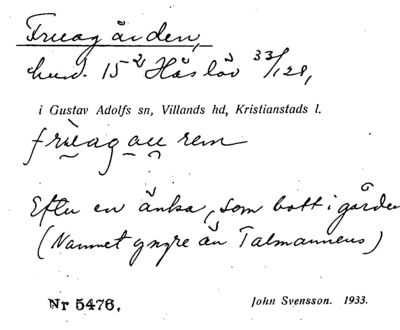 Frueagården,
hmd. 15² Håslöv 33/128,
i Gustav Adolfs sn, Villands hd, Kristianstads l.
frueagau rem
Efter en änka, som bott i gården
(Namnet yngre än Talmannens)
Nr 5476. John Svensson. 1933.